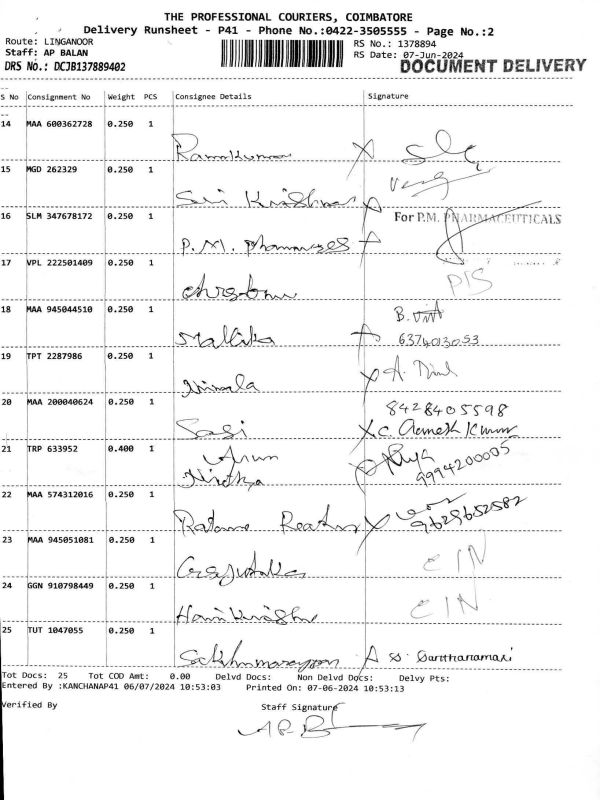 THE PROFESSIONAL COURIERS, COIMBATORE
Delivery Runsheet - P41 - Phone No.:0422-3505555 - Page No.:2
Route: LINGANOOR RS No.: 1378894
Staff: AP BALAN RS Date: 07-Jun-2024
DRS No.: DCJB137889402 DOCUMENT DELIVERY
S No Consignment No Weight PCS Consignee Details Signature
14 MAA 600362728 0.250 1
Ramkumar X
15 MGD 262329 0.250 1
Sri Krishna
16 SLM 347678172 0.250 1 For P.M. PHARMACEUTICALS
P.M.
17 VPL 222501409 0.250 1 PIS
18 MAA 945044510 0.250 1 B.
Mallika 6374013053
19 TPT 2287986 0.250 1
Nirmala X A.
20 MAA 200040624 0.250 1 8428405598
Sasi X C. Kumar
21 TRP 633952 0.400 1
Arun
Nithya 9994200005
22 MAA 574312016 0.250 1
X 9629652582
23 MAA 945051081 0.250 1 CIN
24 GGN 910798449 0.250 1 CIN
25 TUT 1047055 0.250 1
Tot Docs: 25 Tot COD Amt: 0.00 Delvd Docs: Non Delvd Docs: Delvy Pts:
Entered By :KANCHANAP41 06/07/2024 10:53:03 Printed On: 07-06-2024 10:53:13
Verified By Staff Signature